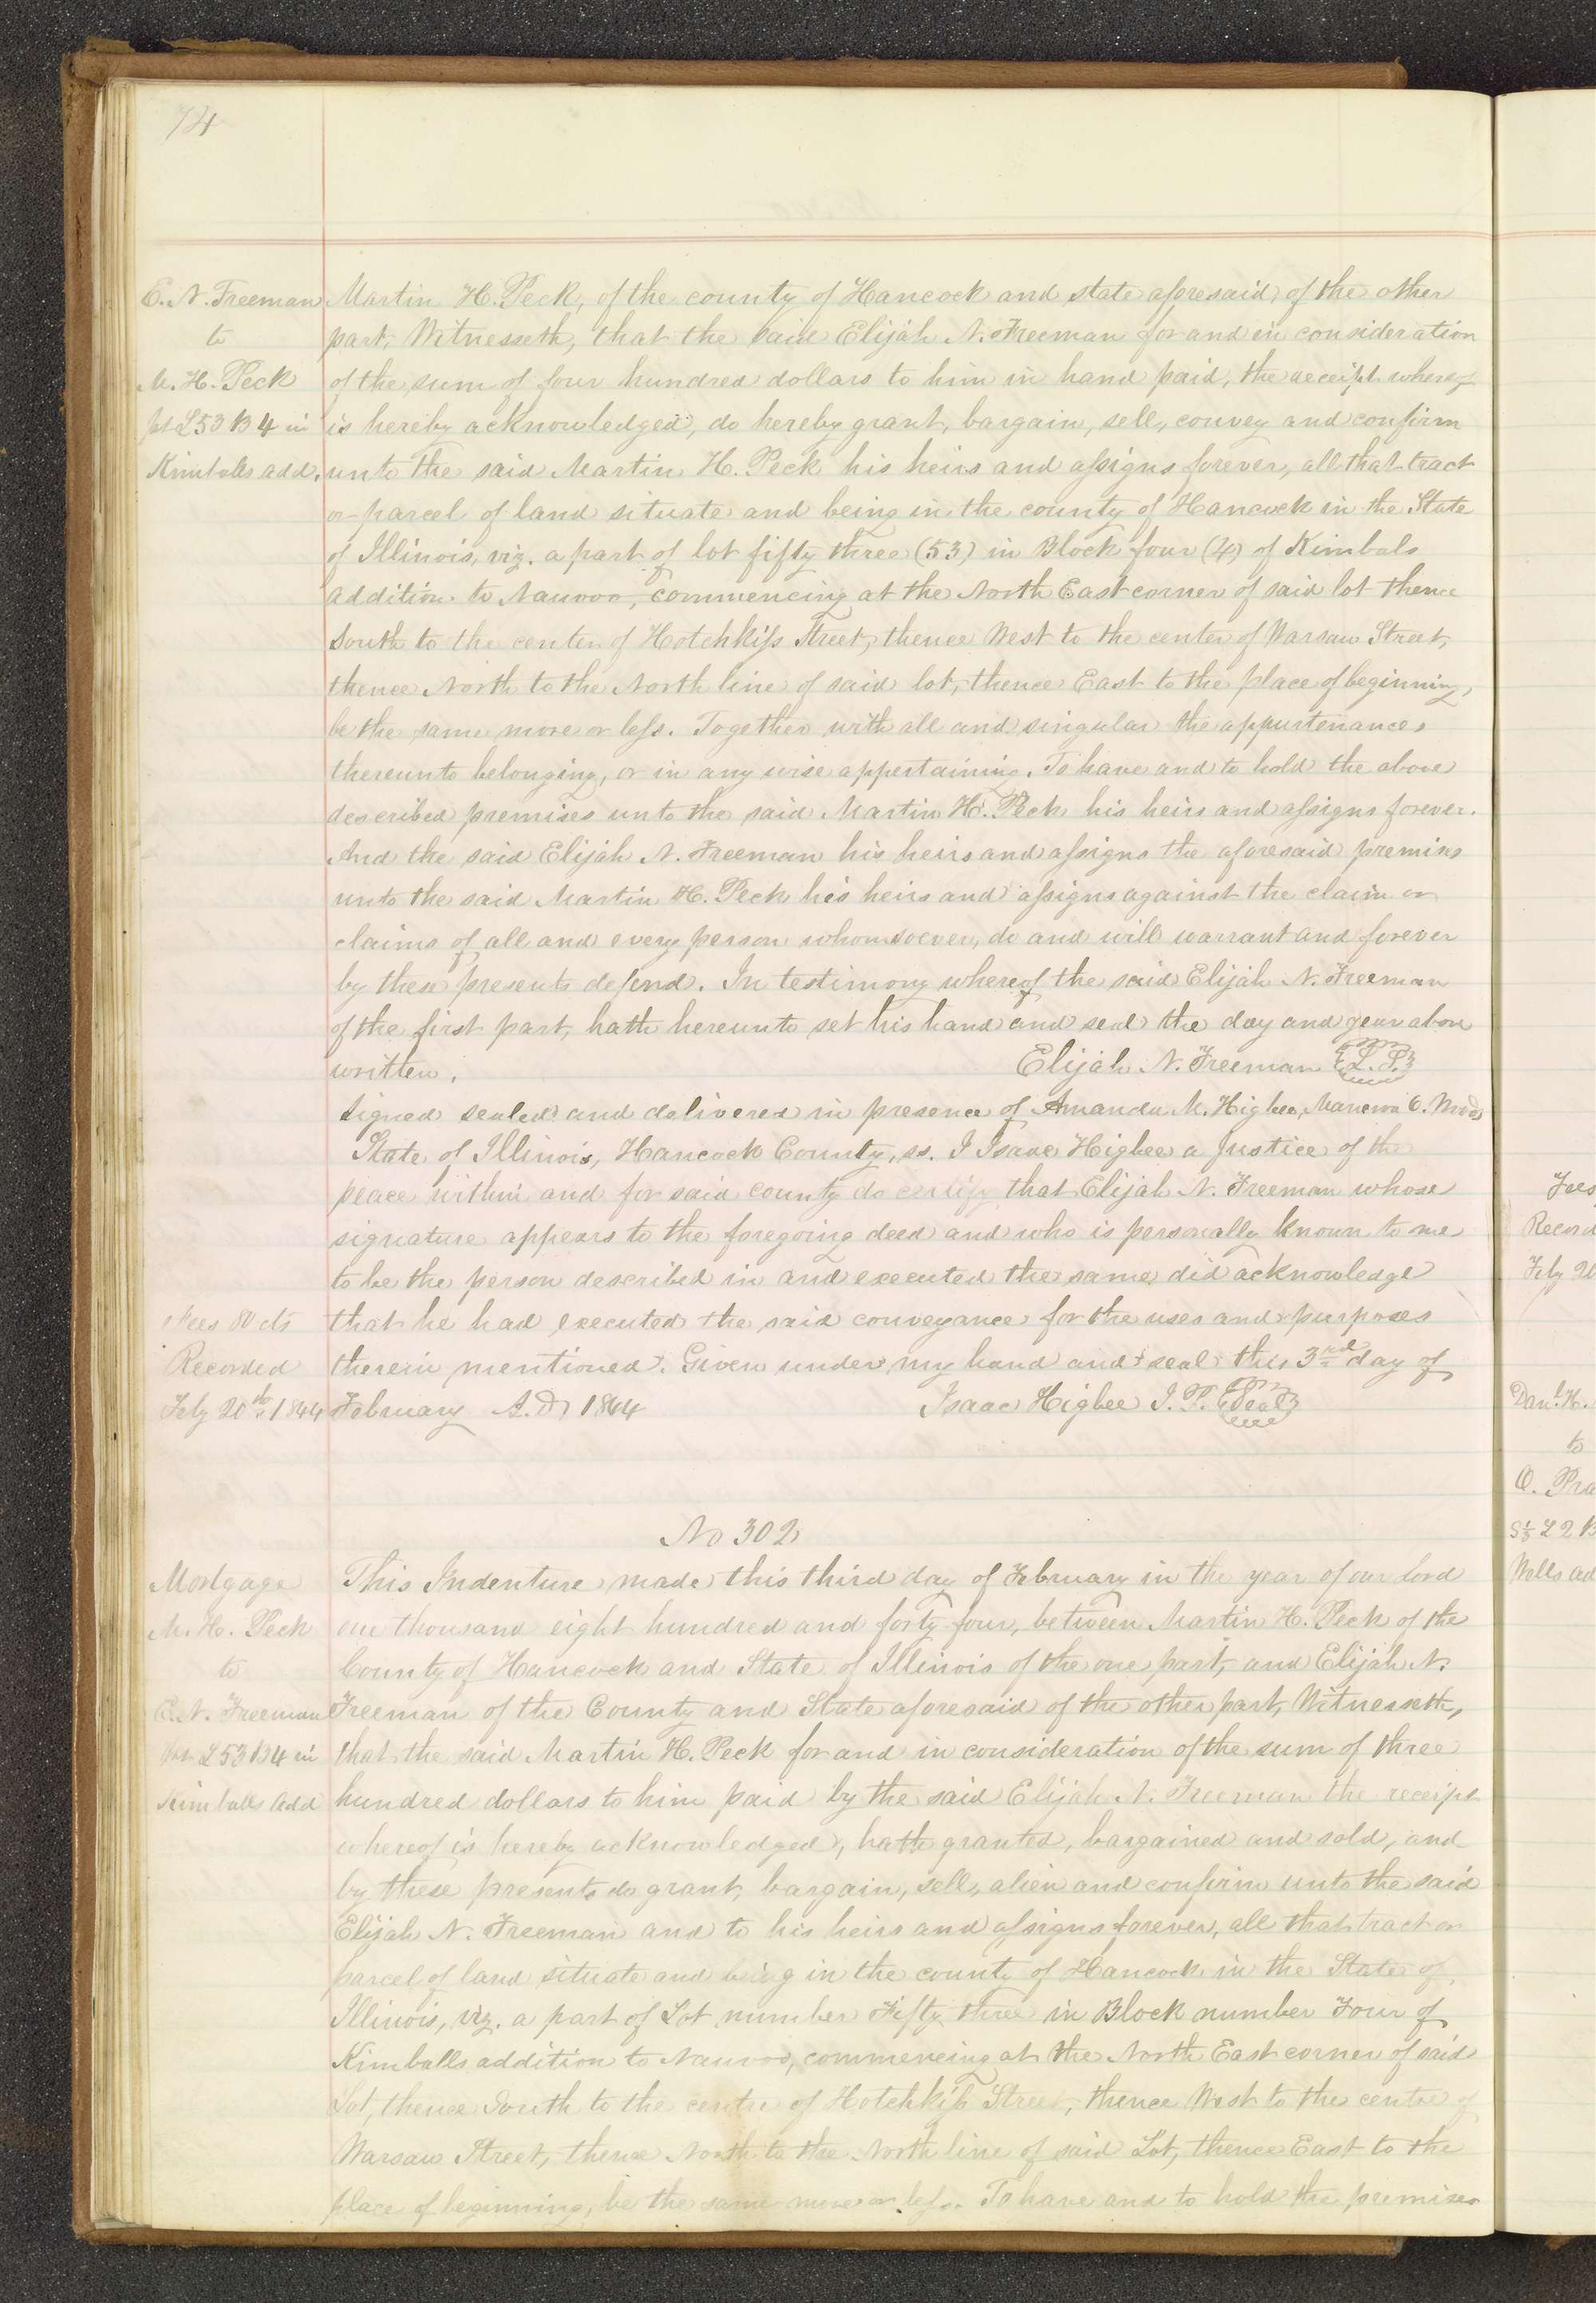 74
E. N. Freeman
to
M. H. Peck
pt L53 B4 in
Kimballs add.
Martin H. Peck, of the county of Hancock and state aforesaid, of the other
part, Witnesseth, that the said Elijah N. Freeman for and in consideration
of the sum of four hundred dollars to him in hand paid, the receipt whereof
is hereby acknowledged, do hereby grant, bargain, sell, convey and confirm
unto the said Martin H. Peck his heirs and assigns forever, all that tract
or parcel of land situate and being in the county of Hancock in the State
of Illinois, viz. a part of lot fifty three (53) in Block four (4) of Kimbals
addition to Nauvoo, commencing at the North East corner of said lot thence
South to the center of Hotchkiss Street, thence West to the center of Warsaw Street,
thence North to the North line of said lot, thence East to the place of beginning,
be the same more or less. Together with all and singular the appurtenances
thereunto belonging, or in any wise appertaining. To have and to hold the above
described premises unto the said Martin H. Peck his heirs and assigns forever.
And the said Elijah N. Freeman his heirs and assigns the aforesaid premises
unto the said Martin H. Peck his heirs and assigns against the claim or
claims of all and every person whomsoever, do and will warrant and forever
by these presents defend. In testimony whereof the said Elijah N. Freeman
of the first part, hath hereunto set his hand and seal the day and year above
written. Elijah N. Freeman L.S.
Signed sealed and delivered in presence of Amanda M. Higbee,
State of Illinois, Hancock County, ss. I Isaac Higbee a Justice of the
peace within and for said county do certify that Elijah N. Freeman whose
signature appears to the foregoing deed and who is personally known to me
to be the person described in and executed the same did acknowledge
that he had executed the said conveyance for the uses and purposes
therein mentioned. Given under my hand and seal this 3rd day of
February A.D. 1844 Isaac Higbee J. P. Seal
Fees 80 cts
Recorded
Feby 20th 1844
No 302
Mortgage
M. H. Peck
to
E. N. Freeman
Pt L53 B4 in
Kimballs Add
This Indenture made this third day of February in the year of our lord
one thousand eight hundred and forty four, between Martin H. Peck of the
County of Hancock and State of Illinois of the one part, and Elijah N.
Freeman of the County and State aforesaid of the other part, Witnesseth,
that the said Martin H. Peck for and in consideration of the sum of three
hundred dollars to him paid by the said Elijah N. Freeman the receipt
whereof is hereby acknowledged, hath granted, bargained and sold, and
by these presents do grant, bargain, sell, alien and confirm unto the said
Elijah N. Freeman and to his heirs and assigns forever, all that tract or
parcel of land situate and being in the county of Hancock in the State of
Illinois, viz. a part of Lot number Fifty three in Block number Four of
Kimballs addition to Nauvoo, commencing at the North East corner of said
Lot, thence South to the centre of Hotchkiss Street, thence West to the centre of
Warsaw Street, thence North to the North line of said Lot, thence East to the
place of beginning, be the same more or less. To have and to hold the premises
Fees
Record
Feby 20
Danl. H.
to
O. Pra
S½ L2 B
Wells ad